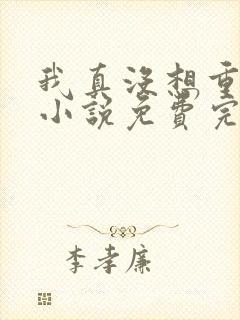 我真没想重
小说免费完
李孝廉